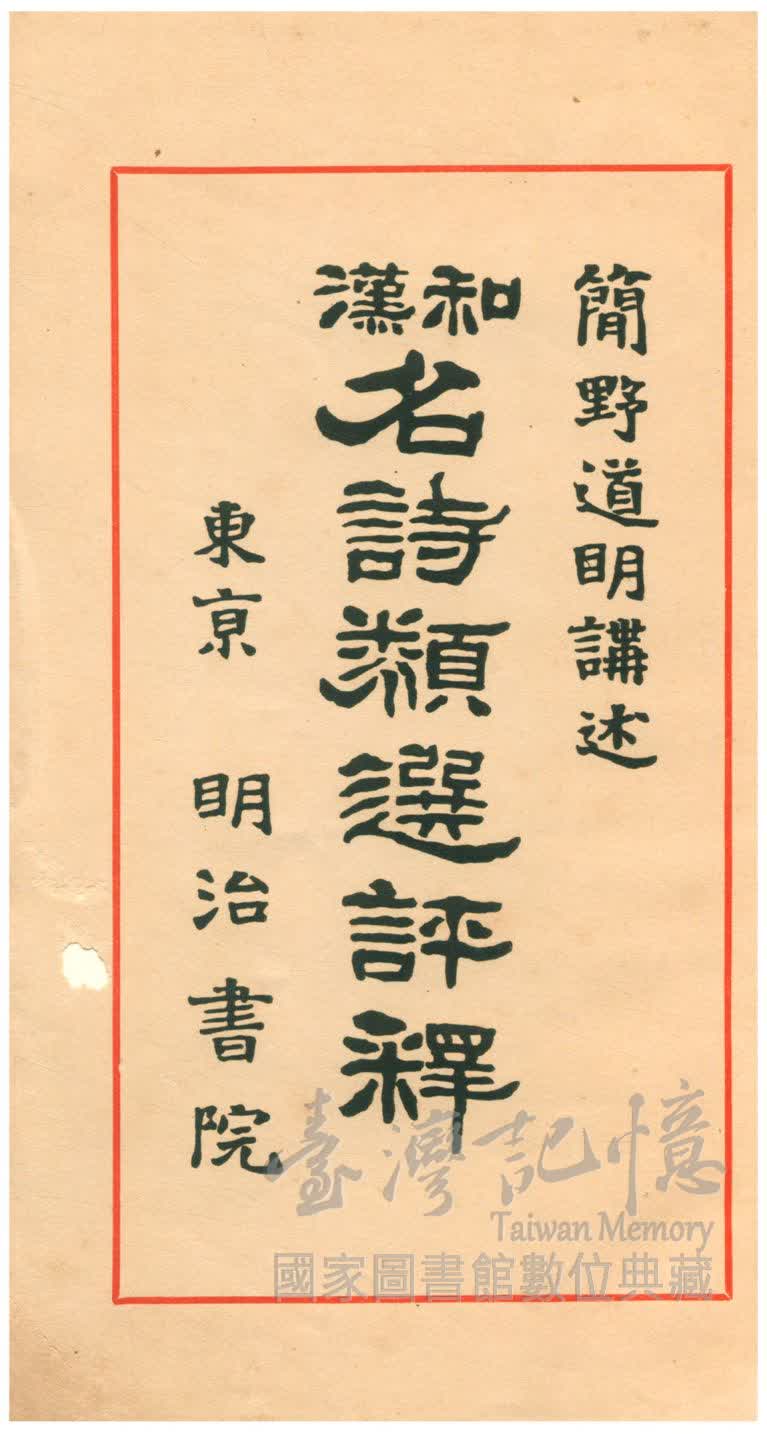 簡野道明講述
和漢
名詩類選評釋
東京 明治書院
臺灣記憶
Taiwan Memory
國家圖書館數位典藏